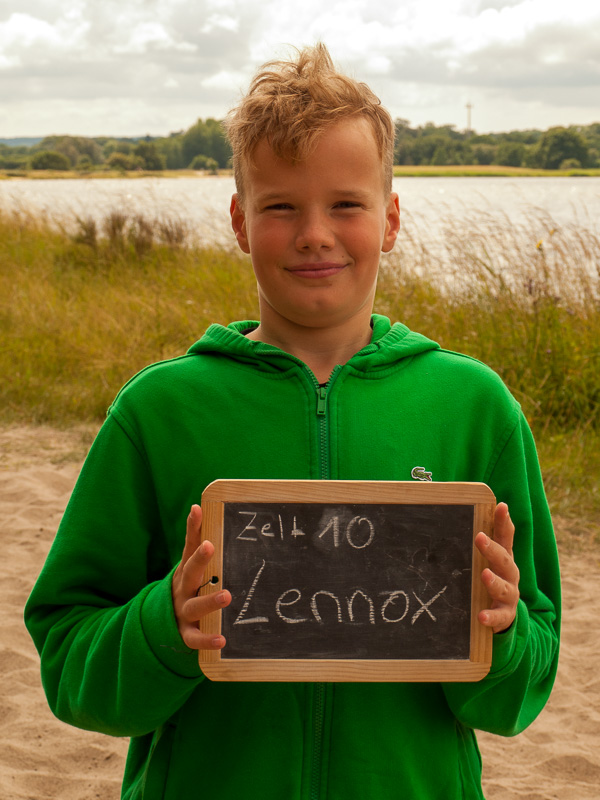 Zelt 10
Lennox